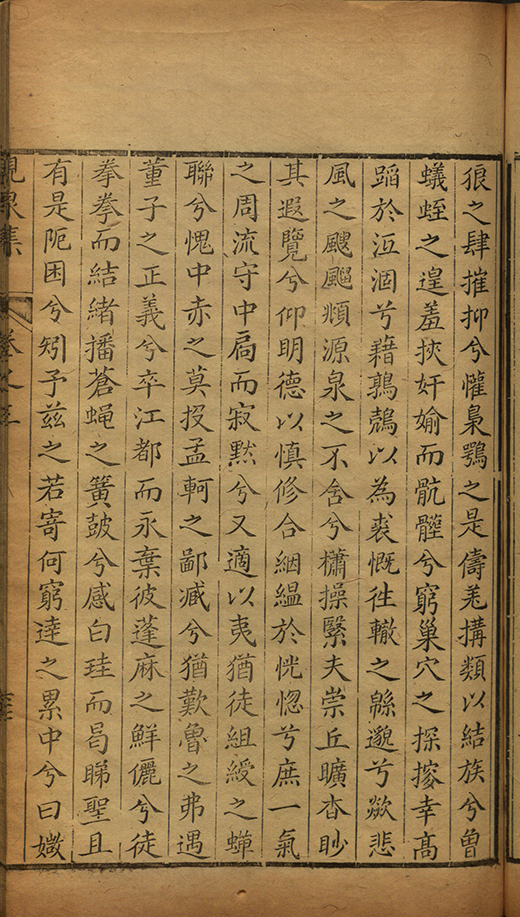 狼之肆摧抑兮懼梟鶚之是儔羌搆類以結族兮曾
蟻蛭之遑羞挾奸婾而骯髒兮窮巢穴之探撉幸高
蹈於沍涸兮藉鶉鷇以為裘慨徃轍之緜邈兮欻悲
風之颼飀頫源泉之不舍兮櫹操繄夫崇丘曠杳眇
其遐覽兮仰明德以慎修合絪縕於恍惚兮庶一氣
之周流守中扃而寂默兮又適以夷猶徒組綬之蟬
聯兮愧中赤之莫投孟軻之鄙臧兮猶歎魯之弗遇
董子之正義兮卒江都而永棄彼蓬麻之鮮儷兮徒
拳拳而結緒播蒼蝇之簧皷兮感白珪而曷睇聖且
有是阨困兮矧予兹之若寄何窮逹之累中兮曰媺
卷之